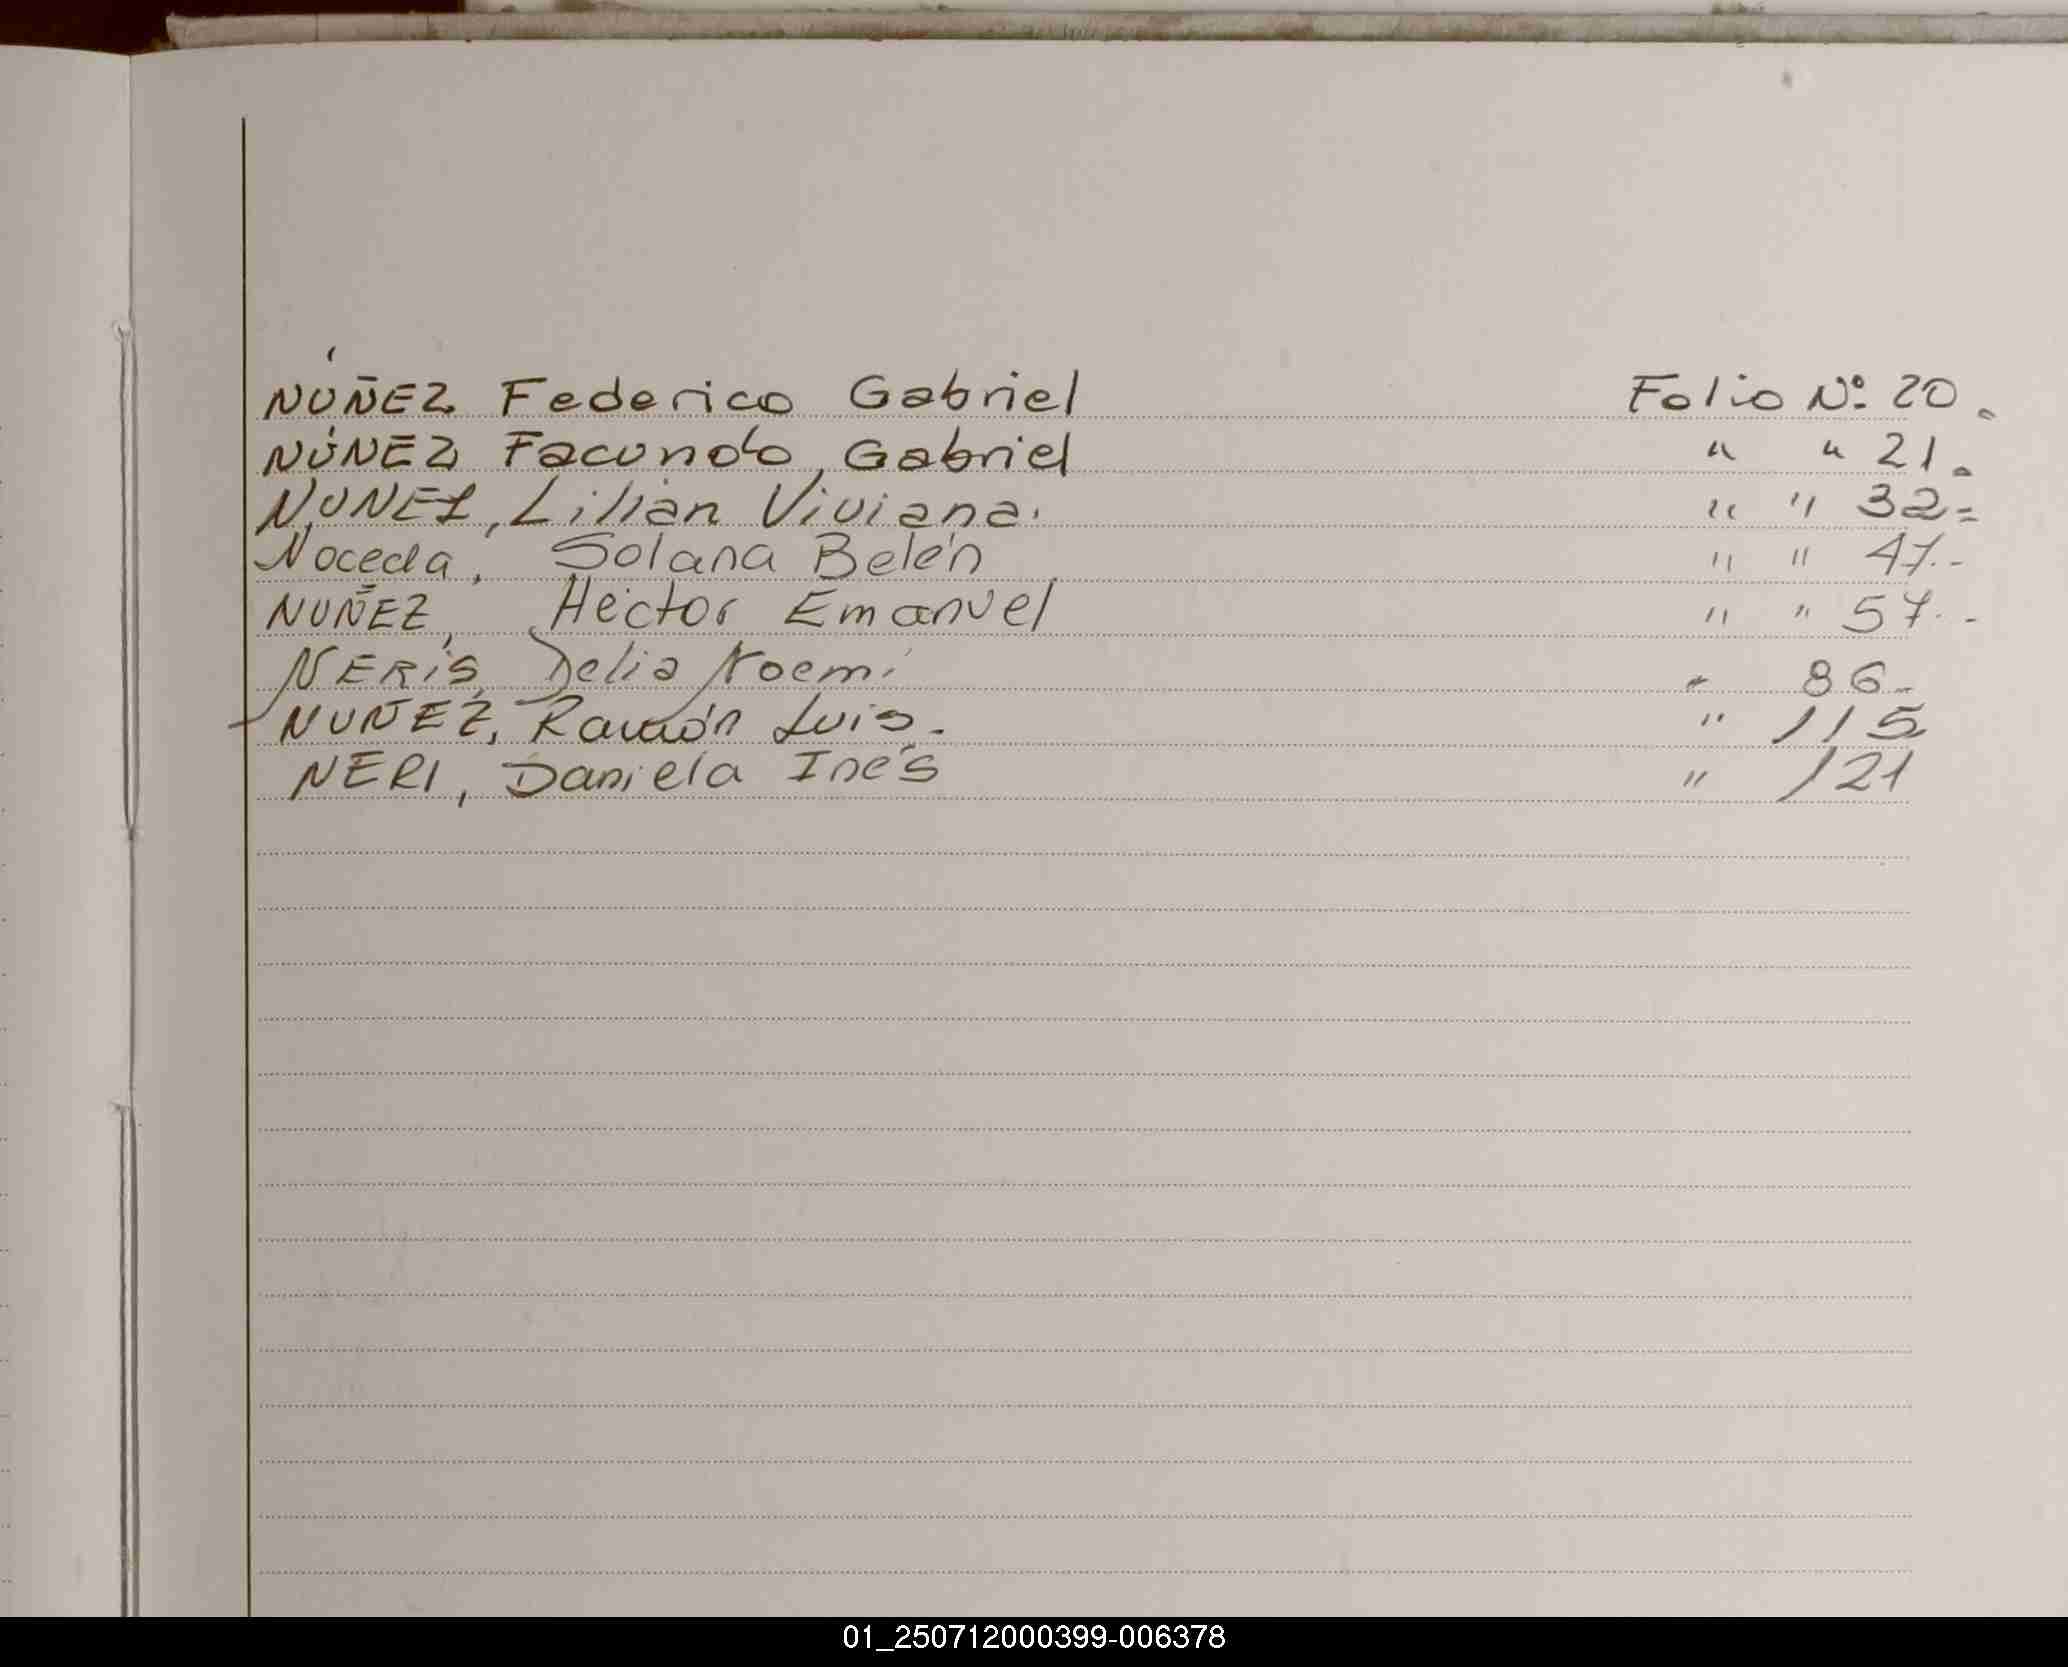 NÚÑEZ, Federico Gabriel Folio Nº: 20.
NÚÑEZ, Facundo, Gabriel " " 21.
NUNEZ, Lilian Viviana. " " 32=
Noceda, Solana Belén " " 47.-
NUÑEZ, Héctor Emanuel " " 57.-
NERIS, Delia Noemí " 86-
NUÑEZ, Ramón Luis.- " 115
NERI, Daniela Inés " 121
01_250712000399-006378